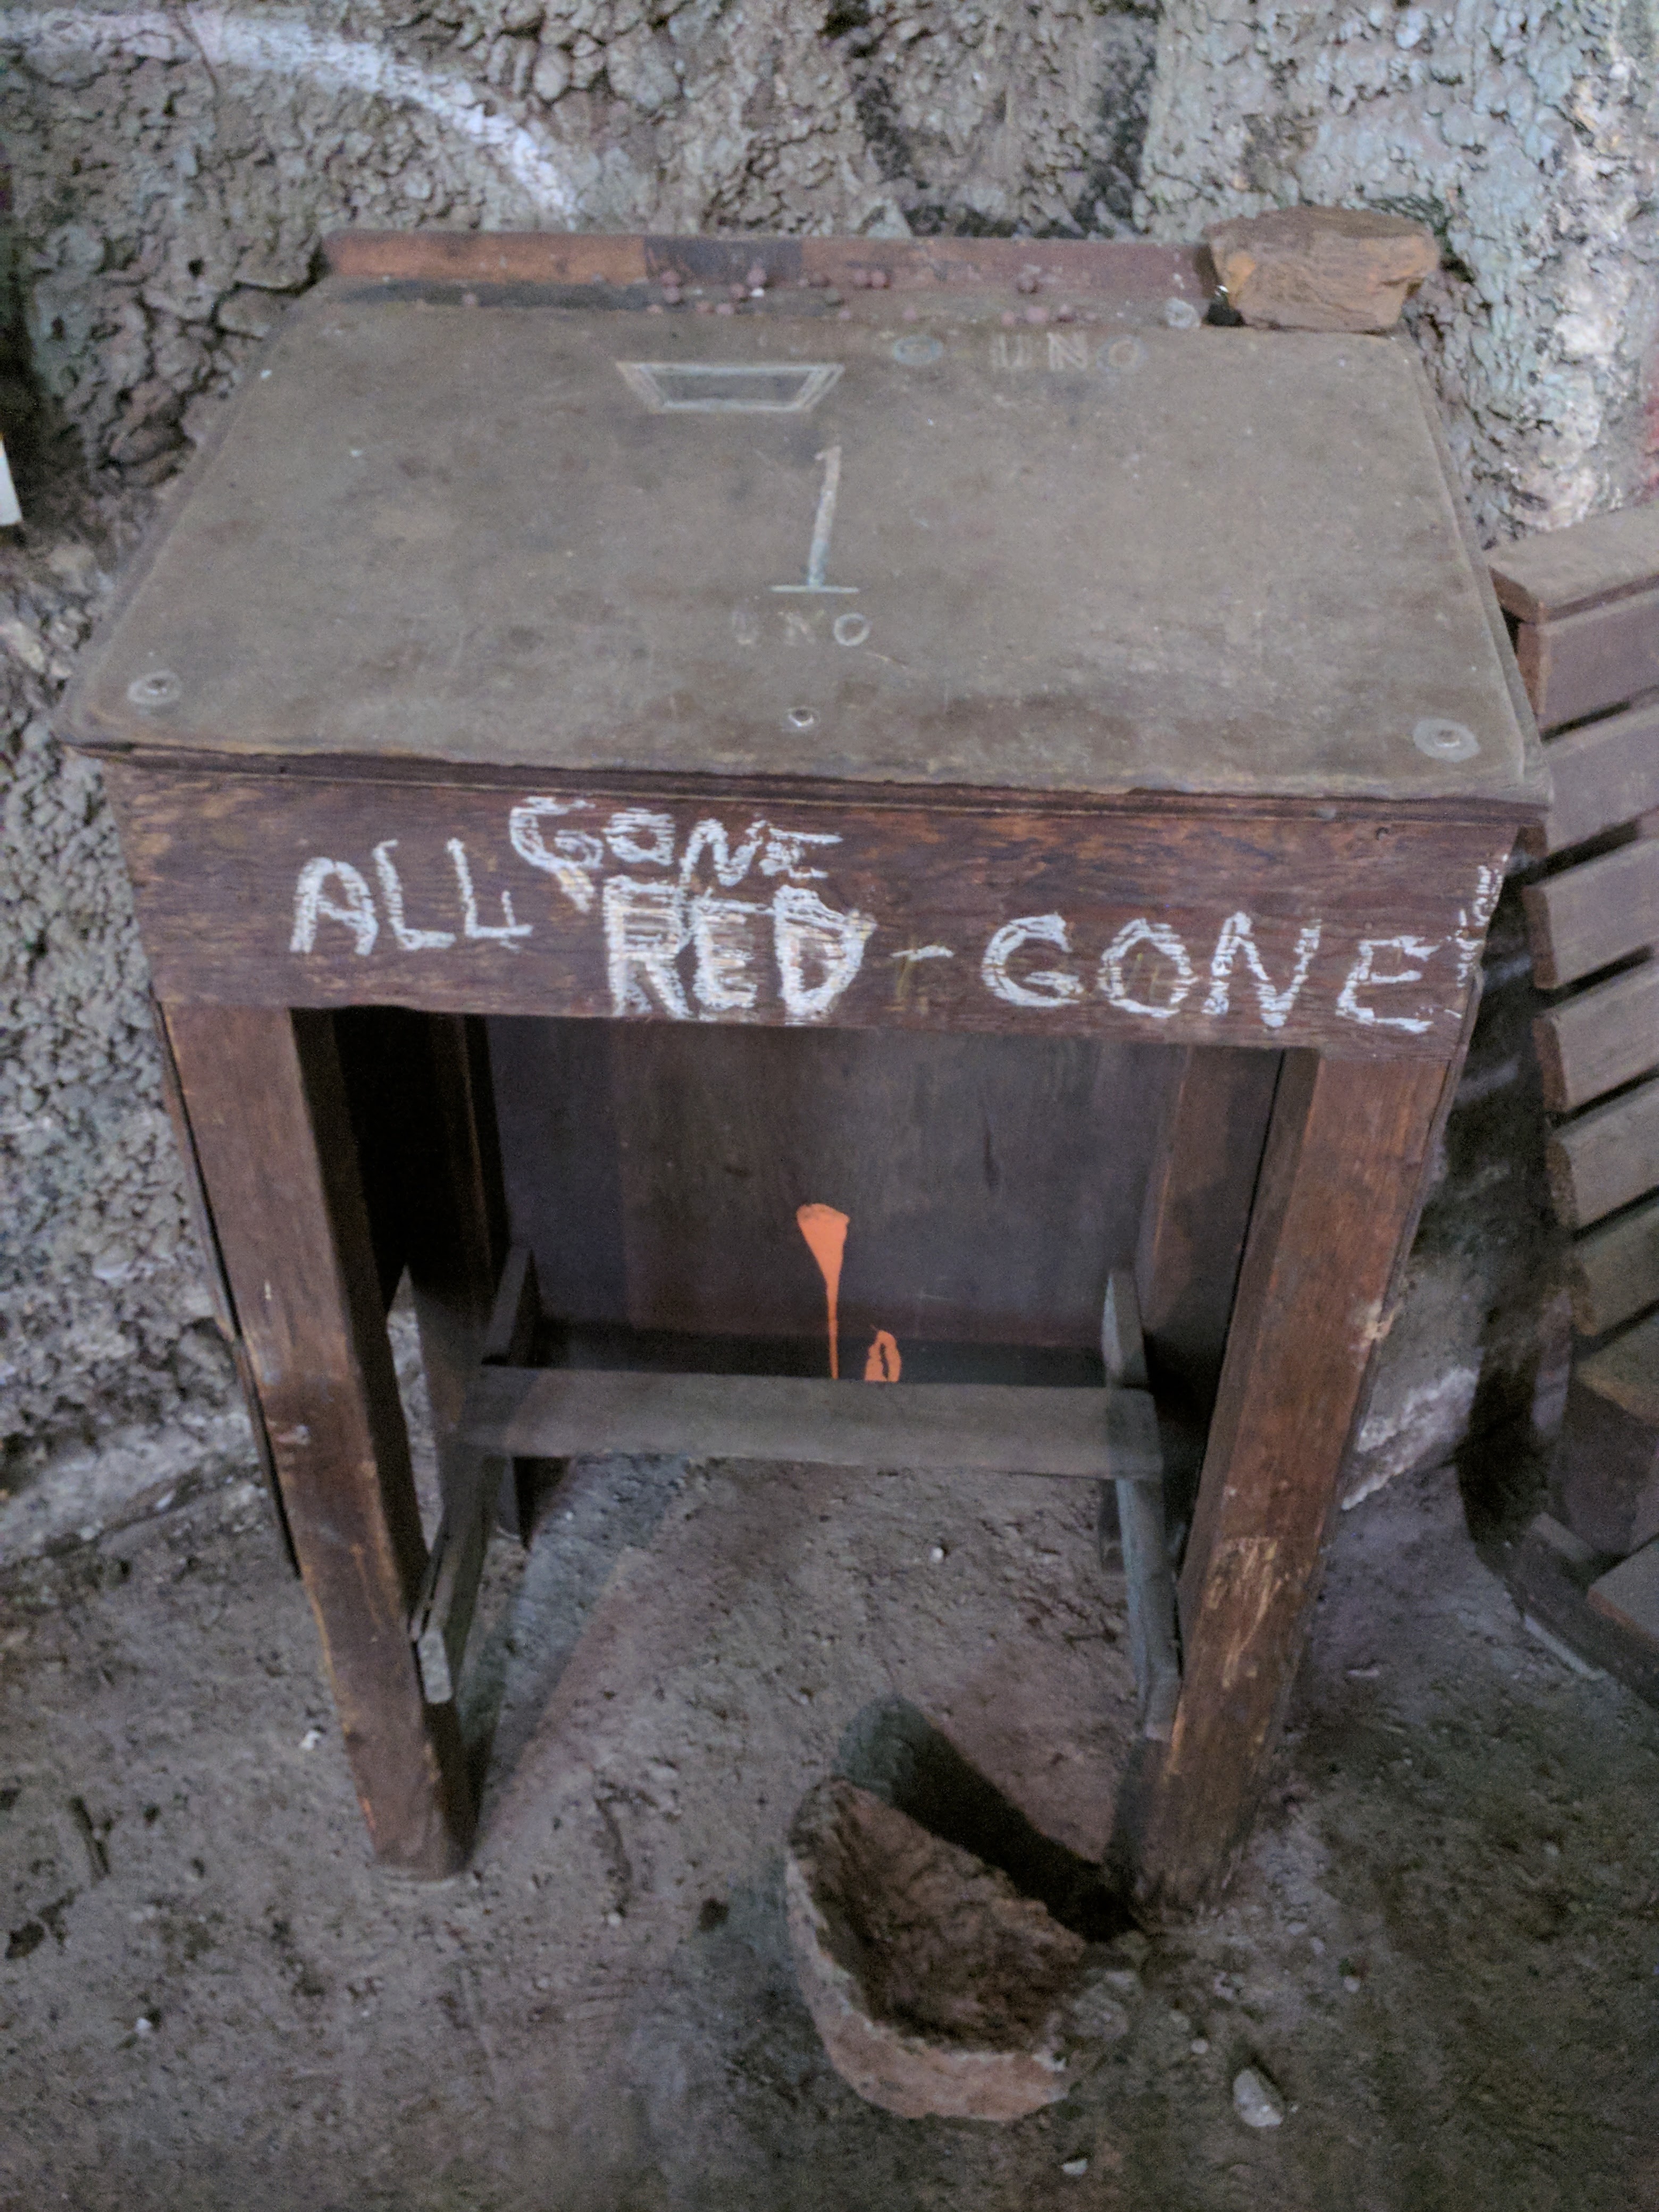 O UNO
1
UNO
ALL GONE
RED - GONE